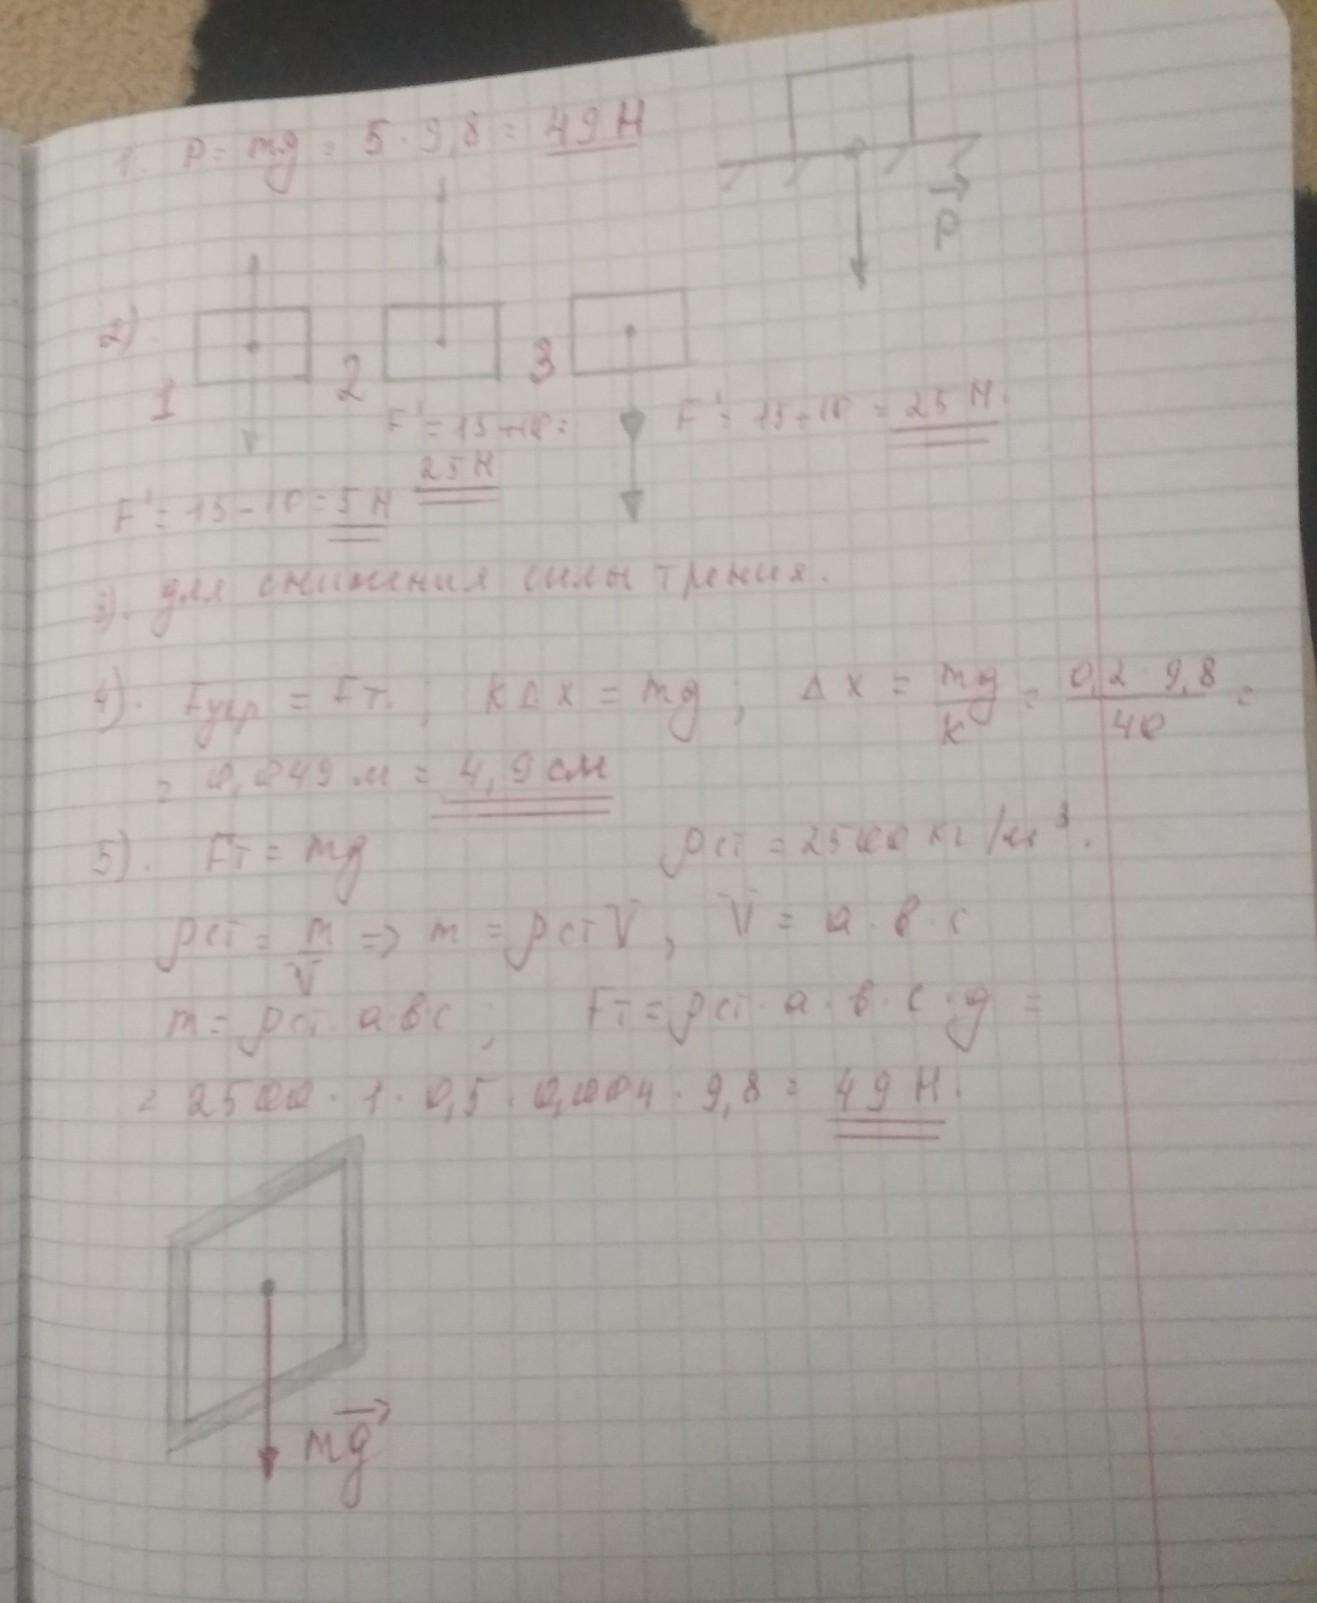 1. P = mg = 5 · 9,8 = 49 Н
P
2).
1 2 3
F' = 15+10 =
25 Н
F' = 15+10 = 25 Н.
F' = 15-10 = 5 Н
3). для снижения силы трения.
4). Fупр = Fт. ; kΔx = mg ; Δx = mg/k = 0,2 · 9,8/40 =
= 0,049 м = 4,9 см
5). Fт = mg ρст = 2500 кг/м³.
ρст = m/V => m = ρст V , V = a · b · c
m = ρст · a·b·c ; Fт = ρст · a · b · c · g =
= 2500 · 1 · 0,5 · 0,004 · 9,8 = 49 Н.
mg